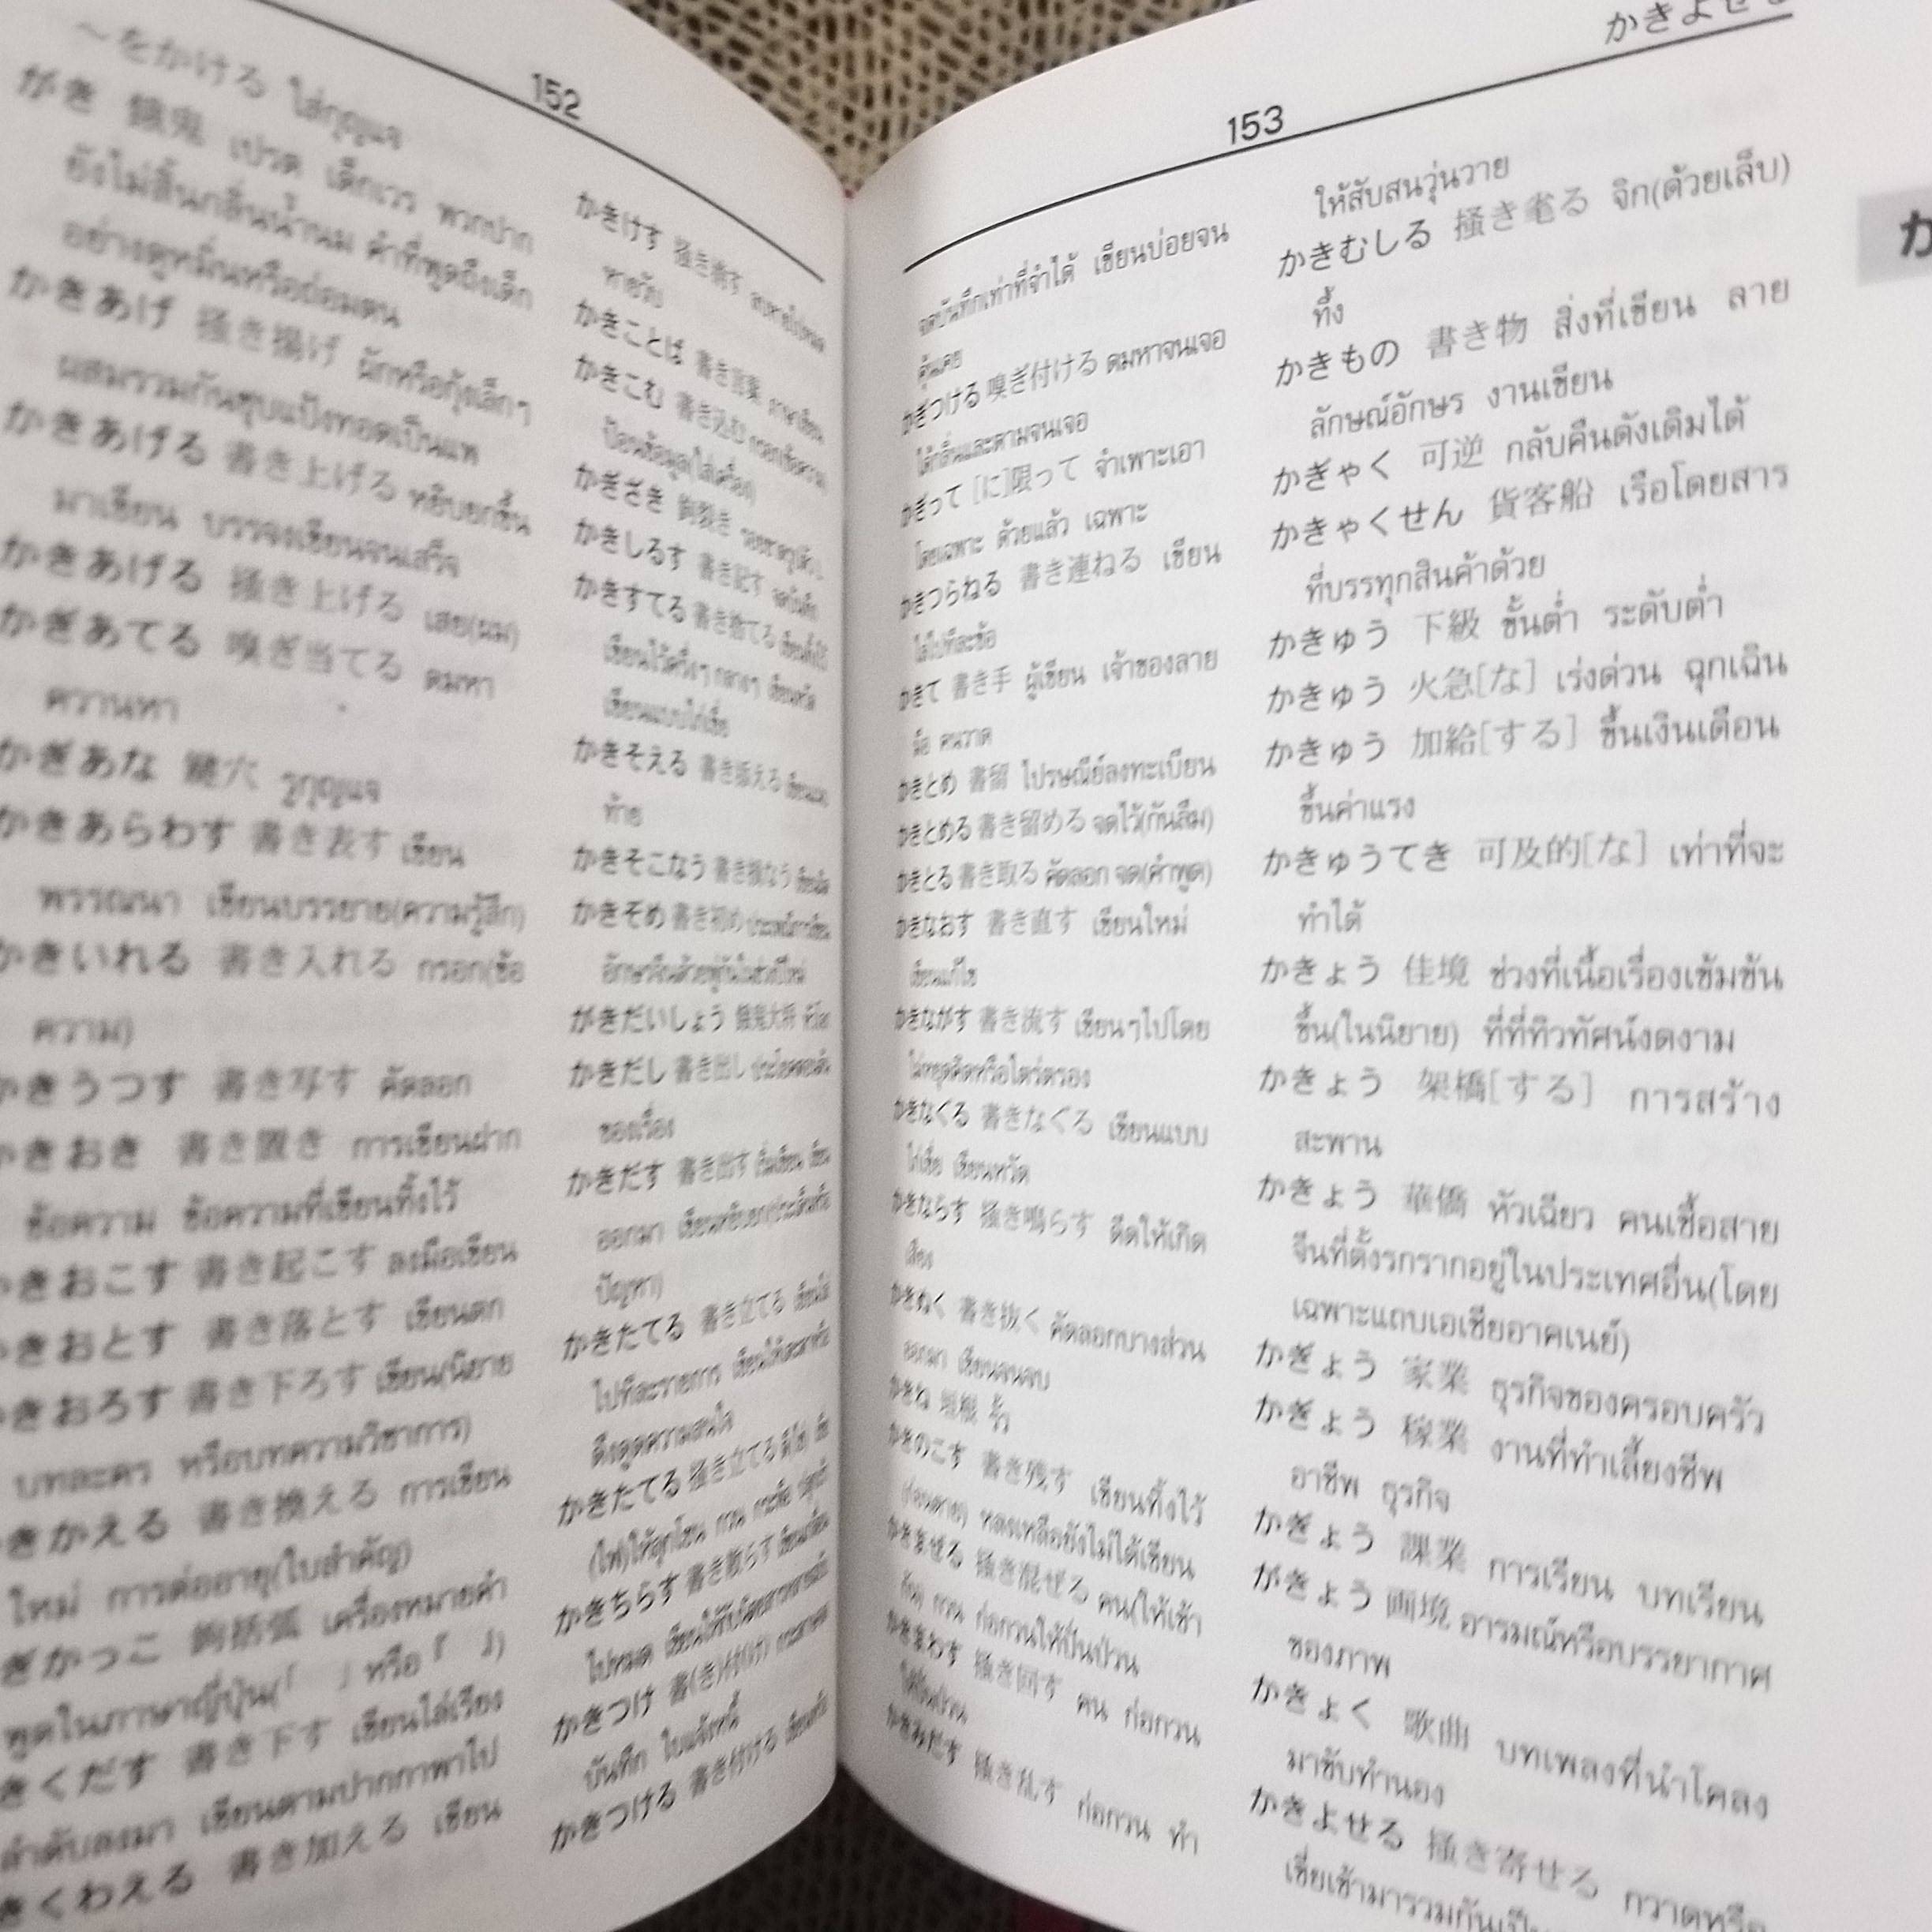 152
～をかける ใส่กุญแจ
がき 餓鬼 เปรต เด็กเวร พวกปาก
ยังไม่สิ้นกลิ่นน้ำนม คำที่พูดถึงเด็ก
อย่างดูหมิ่นหรือถ่อมตน
かきあげ 掻き揚げ ผักหรือกุ้งเล็กๆ
ผสมรวมกันชุบแป้งทอดเป็นแพ
かきあげる 書き上げる หยิบยกขึ้น
มาเขียน บรรจงเขียนจนเสร็จ
かきあげる 掻き上げる เสย(ผม)
かぎあてる 嗅ぎ当てる ดมหา
ควานหา
かぎあな 鍵穴 รูกุญแจ
かきあらわす 書き表す เขียน
พรรณนา เขียนบรรยาย(ความรู้สึก)
かきいれる 書き入れる กรอก(ข้อ
ความ)
かきうつす 書き写す คัดลอก
かきおき 書き置き การเขียนฝาก
ข้อความ ข้อความที่เขียนทิ้งไว้
かきおこす 書き起こす ลงมือเขียน
きおとす 書き落とす เขียนตก
きおろす 書き下ろす เขียน(นิยาย
บทละคร หรือบทความวิชาการ)
きかえる 書き換える การเขียน
ใหม่ การต่ออายุ(ใบสำคัญ)
ぎかっこ 鉤括弧 เครื่องหมายคำ
พูดในภาษาญี่ปุ่น(「 」หรือ『 』)
きくだす 書き下す เขียนไล่เรียง
ลำดับลงมา เขียนตามปากกาพาไป
きくわえる 書き加える เขียน
かきけす 掻き消す
หายวับ
かきことば 書き言葉 ภาษาเขียน
かきこむ 書き込む
ป้อนข้อมูล(ใส่เครื่อง)
かぎざき 鉤裂き
かきしるす 書き記す
かきすてる 書き捨てる
かきそえる 書き添える
ท้าย
かきそこなう 書き損なう
かきぞめ 書き初め
がきだいしょう 餓鬼大将
かきだし 書き出し
ของเรื่อง
かきだす 書き出す
ปัญหา)
かきたてる 書き立てる
ดึงดูดความสนใจ
かきたてる 掻き立てる
かきちらす 書き散らす
かきつけ 書(き)付(け)
บันทึก ใบแจ้งหนี้
かきつける 書き付ける
かきよせる
153
จดบันทึกเท่าที่จำได้ เขียนบ่อยจน
คุ้นเคย
かぎつける 嗅ぎ付ける ดมหาจนเจอ
ได้กลิ่นและตามจนเจอ
かぎって [に]限って จำเพาะเอา
โดยเฉพาะ ด้วยแล้ว เฉพาะ
かきつらねる 書き連ねる เขียน
ไล่ไปทีละข้อ
かきて 書き手 ผู้เขียน เจ้าของลาย
มือ คนวาด
かきとめ 書留 ไปรษณีย์ลงทะเบียน
かきとめる 書き留める จดไว้(กันลืม)
かきとる 書き取る คัดลอก จด(คำพูด)
かきなおす 書き直す เขียนใหม่
เขียนแก้ไข
かきながす 書き流す เขียนๆไปโดย
ไม่หยุดคิดหรือไตร่ตรอง
かきなぐる 書きなぐる เขียนแบบ
ไก่เขี่ย เขียนหวัด
かきならす 掻き鳴らす ดีดให้เกิด
เสียง
かきぬく 書き抜く คัดลอกบางส่วน
ออกมา เขียนจนจบ
かきね 垣根 รั้ว
かきのこす 書き残す เขียนทิ้งไว้
(ก่อนตาย) หลงเหลือยังไม่ได้เขียน
かきまぜる 掻き混ぜる คน(ให้เข้า
กัน) กวน ก่อกวนให้ปั่นป่วน
かきまわす 掻き回す คน ก่อกวน
ให้ปั่นป่วน
かきみだす 掻き乱す ก่อกวน ทำ
ให้สับสนวุ่นวาย
かきむしる 掻き毟る จิก(ด้วยเล็บ)
ทึ้ง
かきもの 書き物 สิ่งที่เขียน ลาย
ลักษณ์อักษร งานเขียน
かぎゃく 可逆 กลับคืนดังเดิมได้
かきゃくせん 貨客船 เรือโดยสาร
ที่บรรทุกสินค้าด้วย
かきゅう 下級 ชั้นต่ำ ระดับต่ำ
かきゅう 火急[な] เร่งด่วน ฉุกเฉิน
かきゅう 加給[する] ขึ้นเงินเดือน
ขึ้นค่าแรง
かきゅうてき 可及的[な] เท่าที่จะ
ทำได้
かきょう 佳境 ช่วงที่เนื้อเรื่องเข้มข้น
ขึ้น(ในนิยาย) ที่ที่ทิวทัศน์งดงาม
かきょう 架橋[する] การสร้าง
สะพาน
かきょう 華僑 หัวเฉียว คนเชื้อสาย
จีนที่ตั้งรกรากอยู่ในประเทศอื่น(โดย
เฉพาะแถบเอเชียอาคเนย์)
かぎょう 家業 ธุรกิจของครอบครัว
かぎょう 稼業 งานที่ทำเลี้ยงชีพ
อาชีพ ธุรกิจ
かぎょう 課業 การเรียน บทเรียน
がきょう 画境 อารมณ์หรือบรรยากาศ
ของภาพ
かきょく 歌曲 บทเพลงที่นำโคลง
มาขับทำนอง
かきよせる 掻き寄せる กวาดหรือ
เขี่ยเข้ามารวมกันเป็น
か